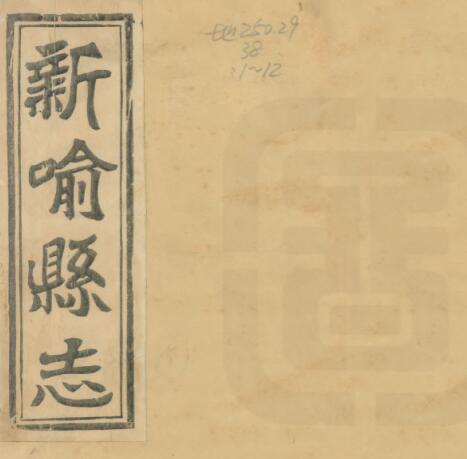 新喻縣志
地250.29
38
:1~12